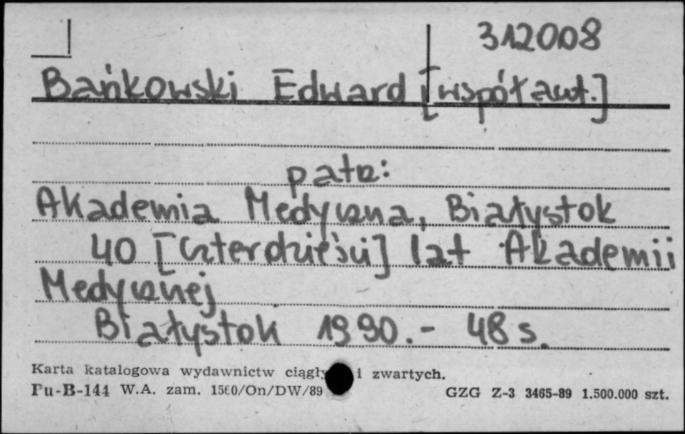 312008
Bańkowski Edward [współaut.]
patrz:
Akademia Medyczna, Białystok
40 [czterdzieści] lat Akademii
Medycznej
Białystok 1990.- 48 s.
Karta katalogowa wydawnictw i zwartych.
Pu-B-144 W.A. zam. 1560/On/DW/89 GZG Z-3 3465-89 1.500.000 szt.